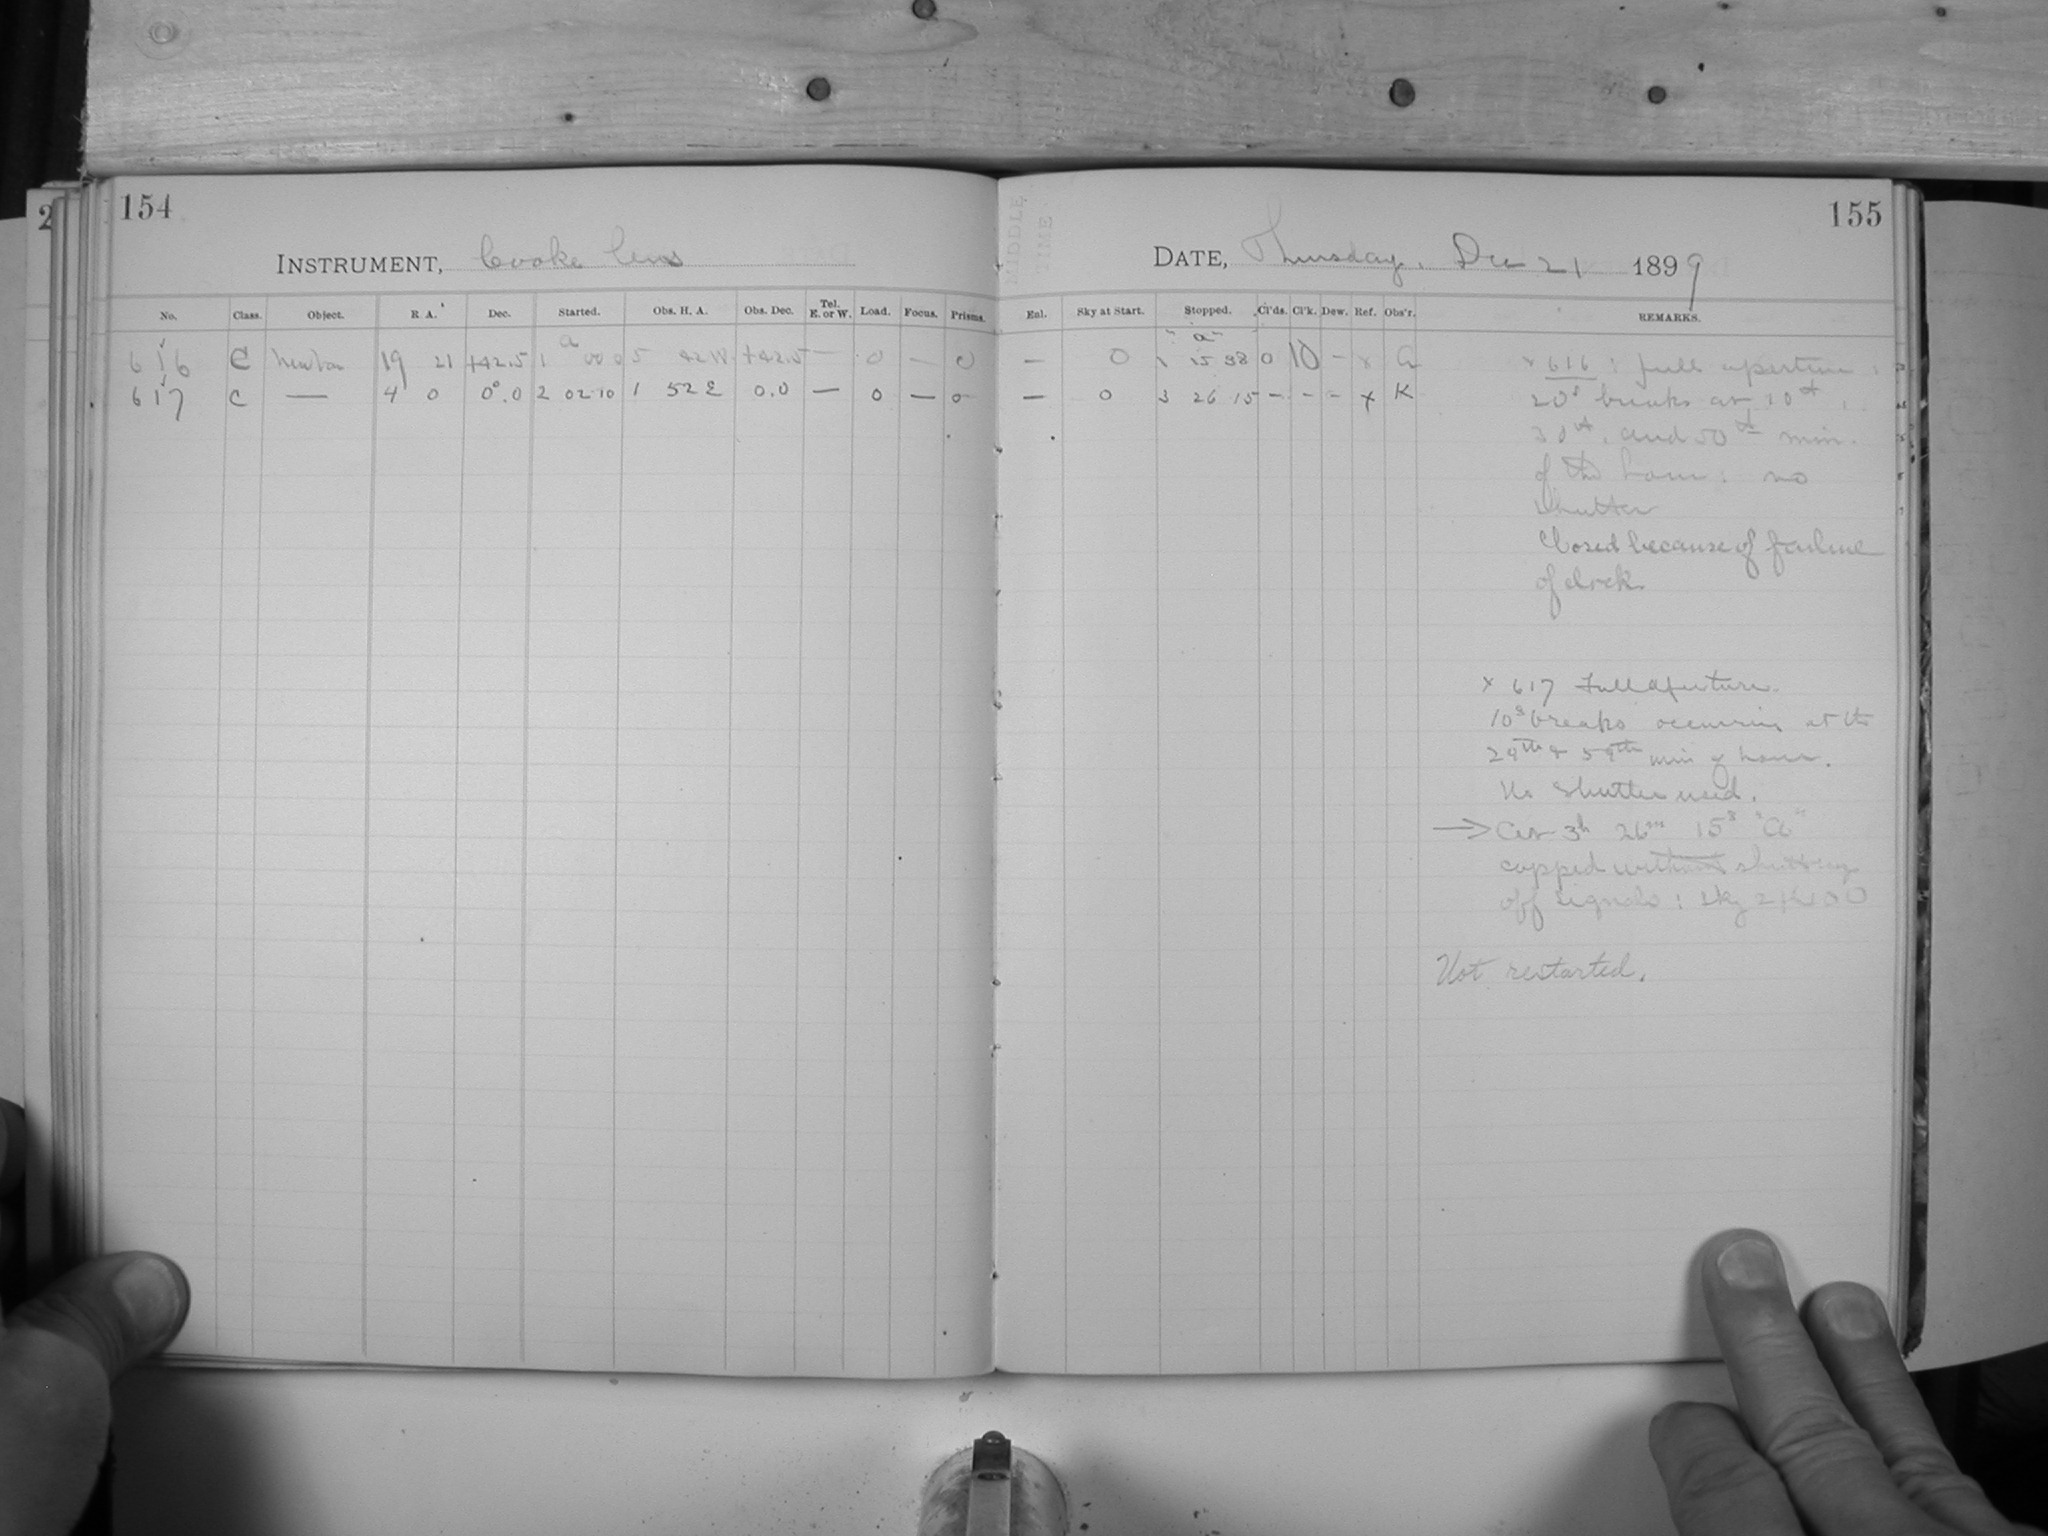 2
154
155
MIDDLE
TIME
INSTRUMENT, Cooke lens
DATE, Thursday, Dec 21 1899
No. Class. Object. R. A. Dec. Started. Obs. H. A. Obs. Dec. Tel. E. or W. Load. Focus. Prisms. Enl. Sky at Start. Stopped. Cl'ds. Cl'k. Dew. Ref. Obs'r. REMARKS.
616 C 19 21 +42.5 1 00 0 5 42 W +42.5 — 0 — 0 — 0 1 15 38 0 10 – x
617 C — 4 0 0°.0 2 02 10 1 52 E 0.0 — 0 — 0 — 0 3 26 15 – – – x K
x 616 : full aperture :
20s breaks at 10th,
30th, and 50th min.
of the hour : no
shutter
Closed because of failure
of clock
x 617 Full aperture.
10s breaks occurring at the
29th & 59th min of hour.
No shutter used.
→ At 3h 26m 15s
capped without shutting
off signals : sky
Not restarted.